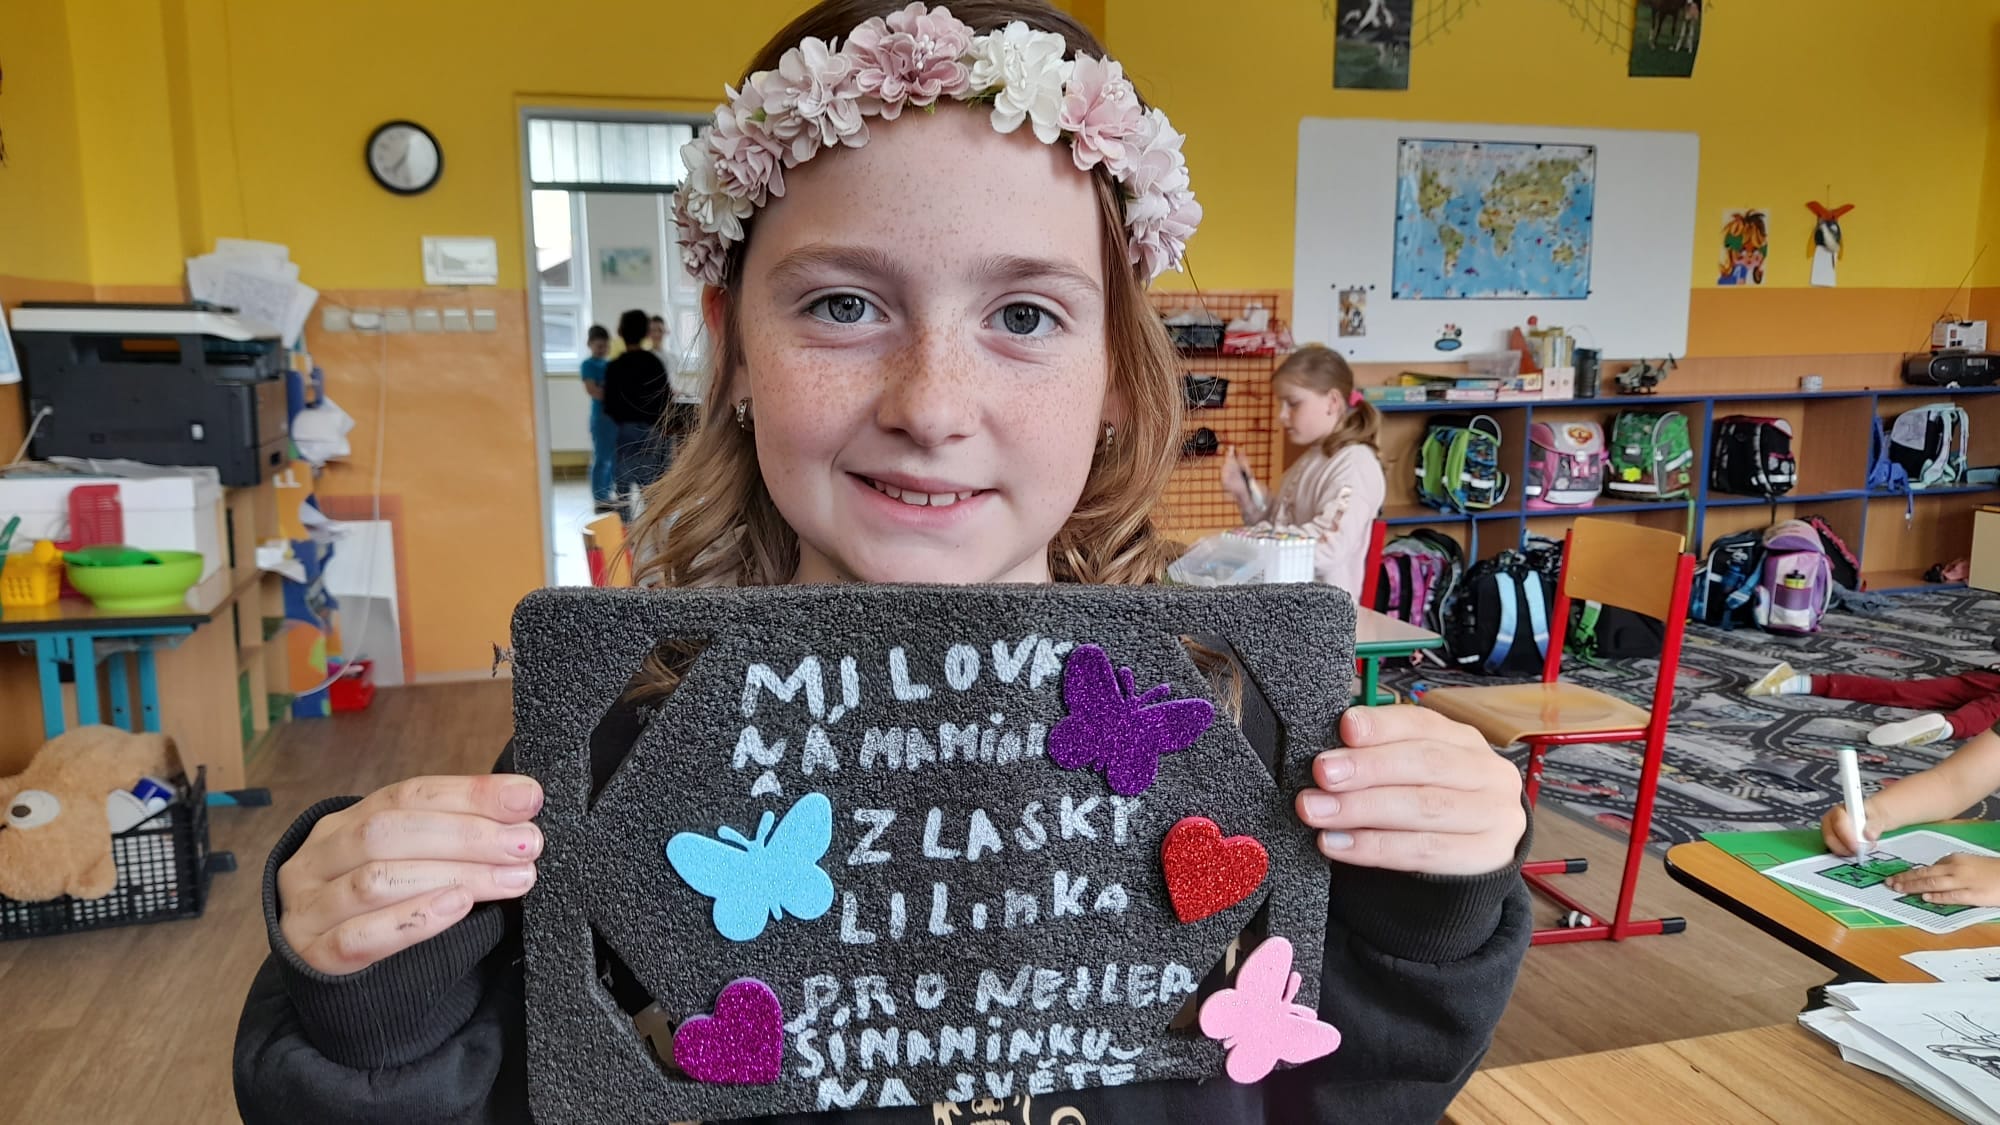 MILOVA
NÁ MAMINK
Z LASKY
LILINKA
PRO NEJLEP
ŠÍ MAMINKU
NA SVĚTĚ